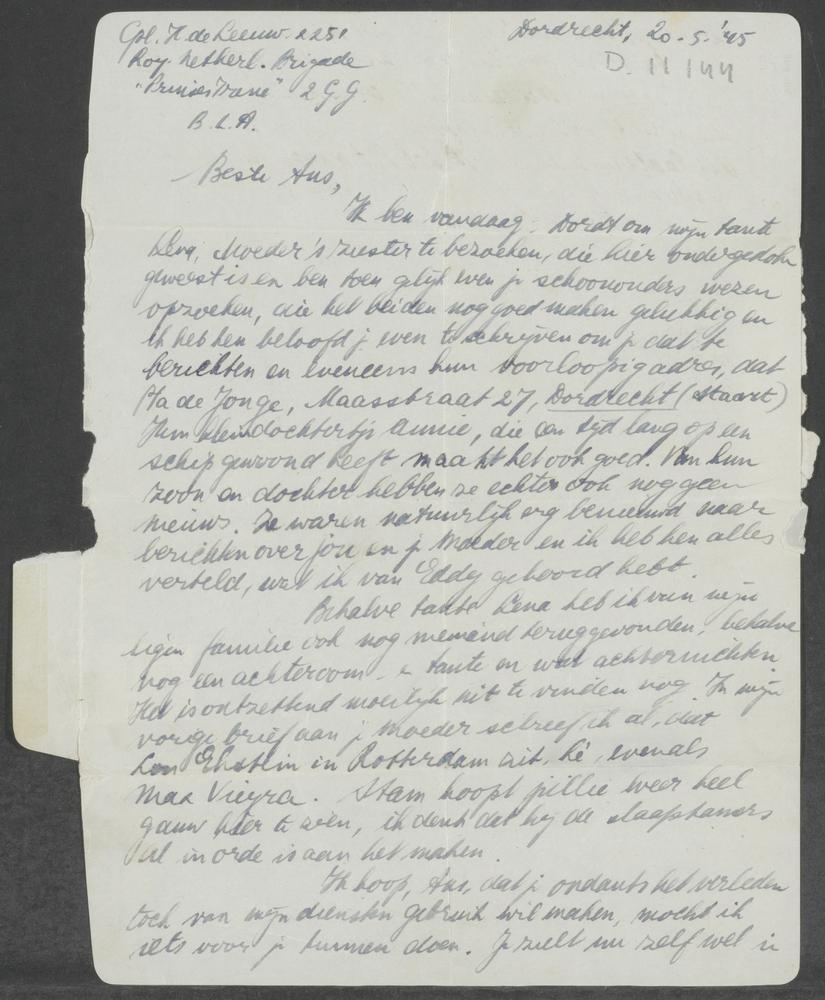 Cpl. H. de Leeuw. 2251
Roy. Netherl. Brigade
"Prinses Irene" 2 G.G.
B.L.A.
Dordrecht, 20.5.'45
D. 11/144
Beste Ans,
Ik ben vandaag in Dordt om mijn tante
Lena, Moeder's zuster te bezoeken, die hier ondergedoken
geweest is en ben toen gelijk even je schoonouders wezen
opzoeken, die het beiden nog goed maken gelukkig en
ik heb hen beloofd je even te schrijven om je dat te
berichten en eveneens hun voorloopig adres, dat
Ha de Jonge, Maasstraat 27, Dordrecht (Staart)
Hun kleindochtertje Annie, die een tijd lang op een
schip gewoond heeft maakt het ook goed. Van hun
zoon en dochter hebben ze echter ook nog geen
nieuws. Ze waren natuurlijk erg benieuwd naar
berichten over jou en je Moeder en ik heb hen alles
verteld, wat ik van Eddy gehoord hebt.
Behalve tante Lena heb ik van mijn
eigen familie ook nog niemand teruggevonden, behalve
nog een achteroom - en tante en wat achternichten.
Het is ontzettend moeilijk uit te vinden nog. In mijn
vorige brief aan je moeder schreef ik al, dat
Lou Ekstein in Rotterdam zit, hè, evenals
Max Vieyra. Stam hoopt jullie weer heel
gauw hier te zien, ik denk dat hij de slaapkamers
al in orde is aan het maken.
Ik hoop, Ans, dat je ondanks het verleden
toch van mijn diensten gebruik wil maken, mocht ik
iets voor je kunnen doen. Je zult nu zelf wel in